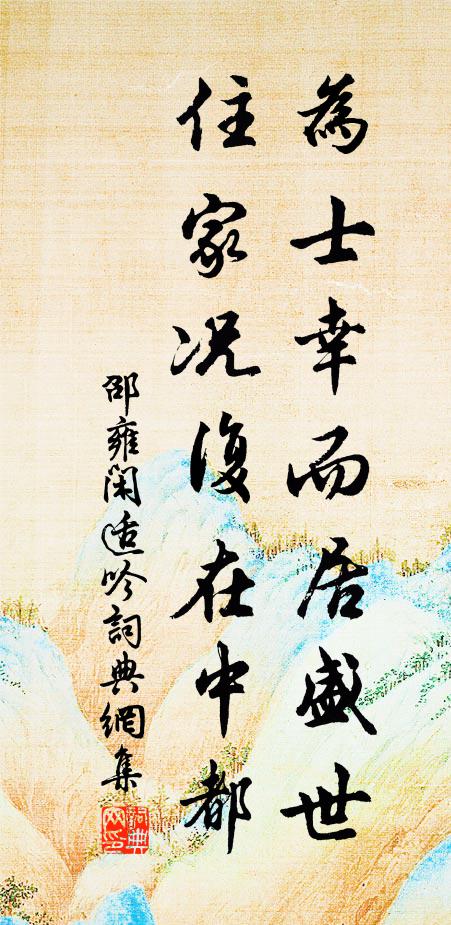 為士幸而居盛世
住家況復在中都
邵雍閑適吟詞典網集
詞典